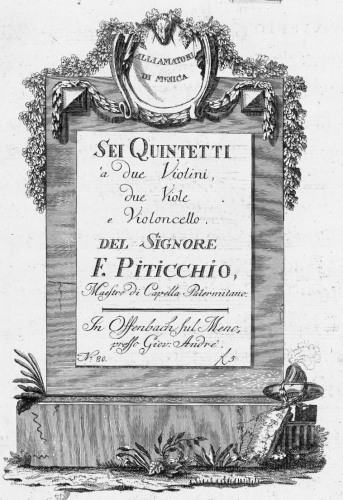 ALLI AMATORI
DI MUSICA
SEI QUINTETTI
a due Violini,
due Viole
e Violoncello.
DEL SIGNORE
F. PITICCHIO,
Maestro di Capella Palermitano.
In Offenbach sul Meno,
presso Giov: André.
No. 80. f. 5